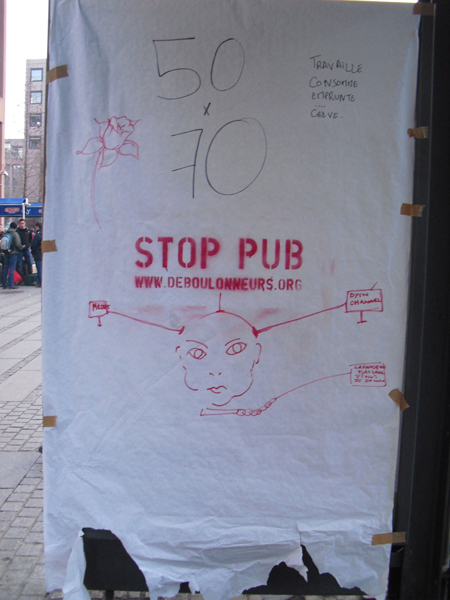 50
x
70
TRAVAILLE
CONSOMME
EMPRUNTE
....
CRÈVE.
STOP PUB
WWW.DEBOULONNEURS.ORG
CHANNEL